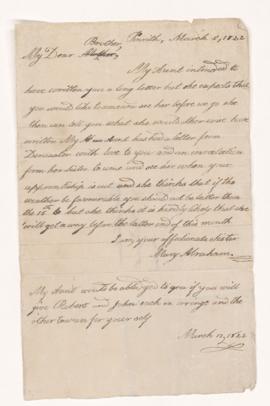 Brother Penrith, March 5, 1822
My Dear Mother,
My Aunt intended to
have written you a long letter but she expects that
you would like to see her before we go she
then can tell you what she would otherwise have
written My Aunt has had a letter from
with love to you and an invitation
from her sister to come and see her when your
apprenticeship is out and she thinks that if the
weather be favourable you should not be later than
the 15th but she thinks it is hardly likely that she
will get away before the latter end of this month
I am your affectionate sister
Mary Abraham.
My Aunt would be obliged to you if you will
give Robert and John each an orange and the
other two are for your self
March 12, 1822